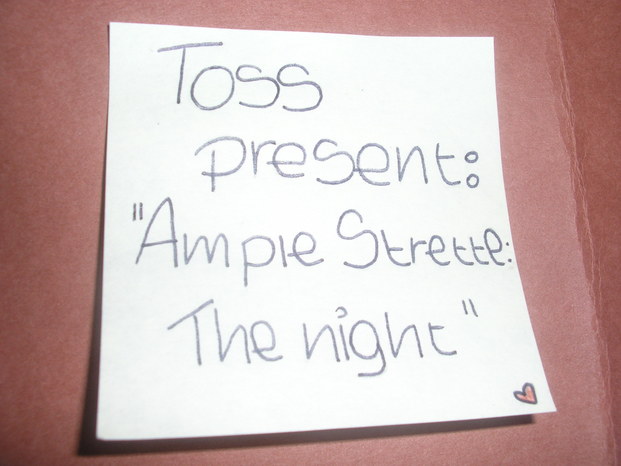 Toss
present:
"Ampie Strette:
The night"